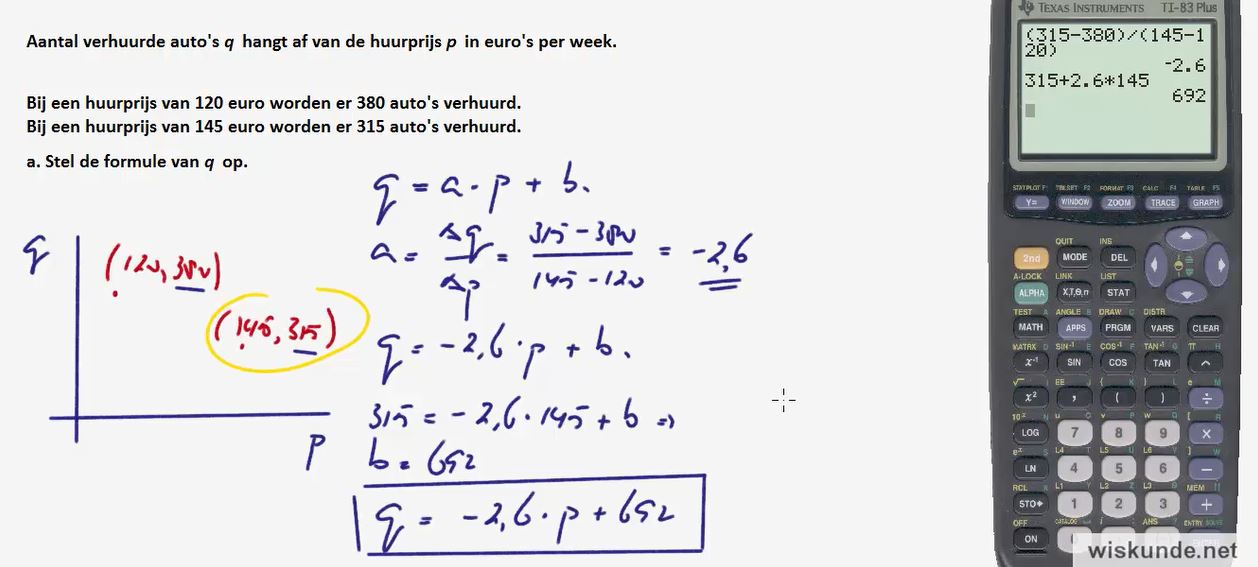 Aantal verhuurde auto's q hangt af van de huurprijs p in euro's per week.
Bij een huurprijs van 120 euro worden er 380 auto's verhuurd.
Bij een huurprijs van 145 euro worden er 315 auto's verhuurd.
a. Stel de formule van q op.
q = a · p + b.
a = Δq/Δp = (315 - 380)/(145 - 120) = -2,6
q = -2,6 · p + b.
315 = -2,6 · 145 + b ⇒
b = 692
q = -2,6 · p + 692
q
(120, 380)
(145, 315)
p
TEXAS INSTRUMENTS TI-83 Plus
(315-380)/(145-1
20)
-2.6
315+2.6*145
692
STAT PLOT F1 TBLSET F2 FORMAT F3 CALC F4 TABLE F5
Y= WINDOW ZOOM TRACE GRAPH
QUIT INS
2nd MODE DEL
A-LOCK LINK LIST
ALPHA X,T,θ,n STAT
TEST A ANGLE B DRAW C DISTR
MATH APPS PRGM VARS CLEAR
MATRX D SIN⁻¹ E COS⁻¹ F TAN⁻¹ G π H
x⁻¹ SIN COS TAN ^
√ I EE J { K } L e M
x² , ( ) ÷
10ˣ N u O v P w Q [ R
LOG 7 8 9 ×
eˣ S L4 T L5 U L6 V ] W
LN 4 5 6 −
RCL X L1 Y L2 Z L3 θ MEM "
STO▸ 1 2 3 +
OFF CATALOG i : ANS ? ENTRY SOLVE
ON
wiskunde.net